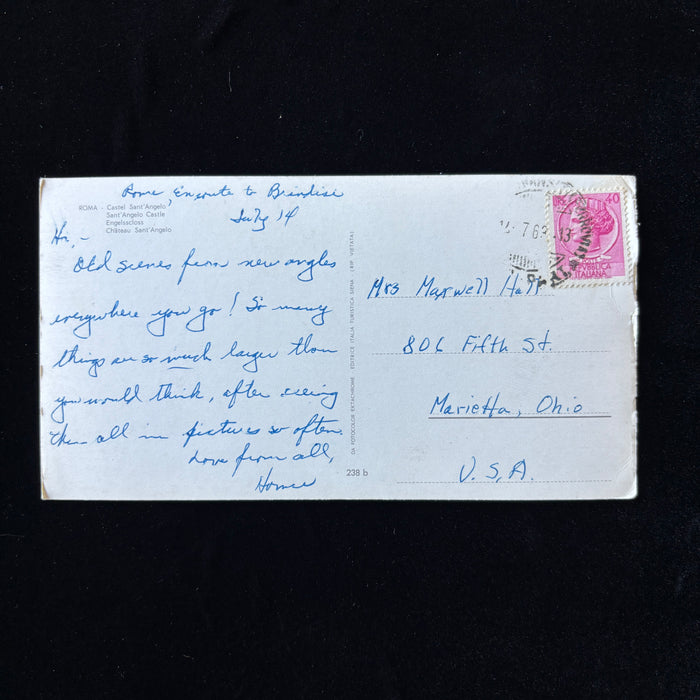 Rome, Enroute to Brindisi
July 14
ROMA - Castel Sant'Angelo
Sant'Angelo Castle
Engelsscloss
Château Sant'Angelo
Hi, -
Old scenes from new angles
everywhere you go! So many
things are so much larger than
you would think, after seeing
them all in pictures so often.
Love from all,
238 b
DA FOTOCOLOR EKTACHROME EDITRICE ITALIA TURISTICA SIENA (RIP. VIETATA)
40
REPUBBLICA
ITALIANA
Mrs Maxwell Hall
806 Fifth St.
Marietta, Ohio
U.S.A.